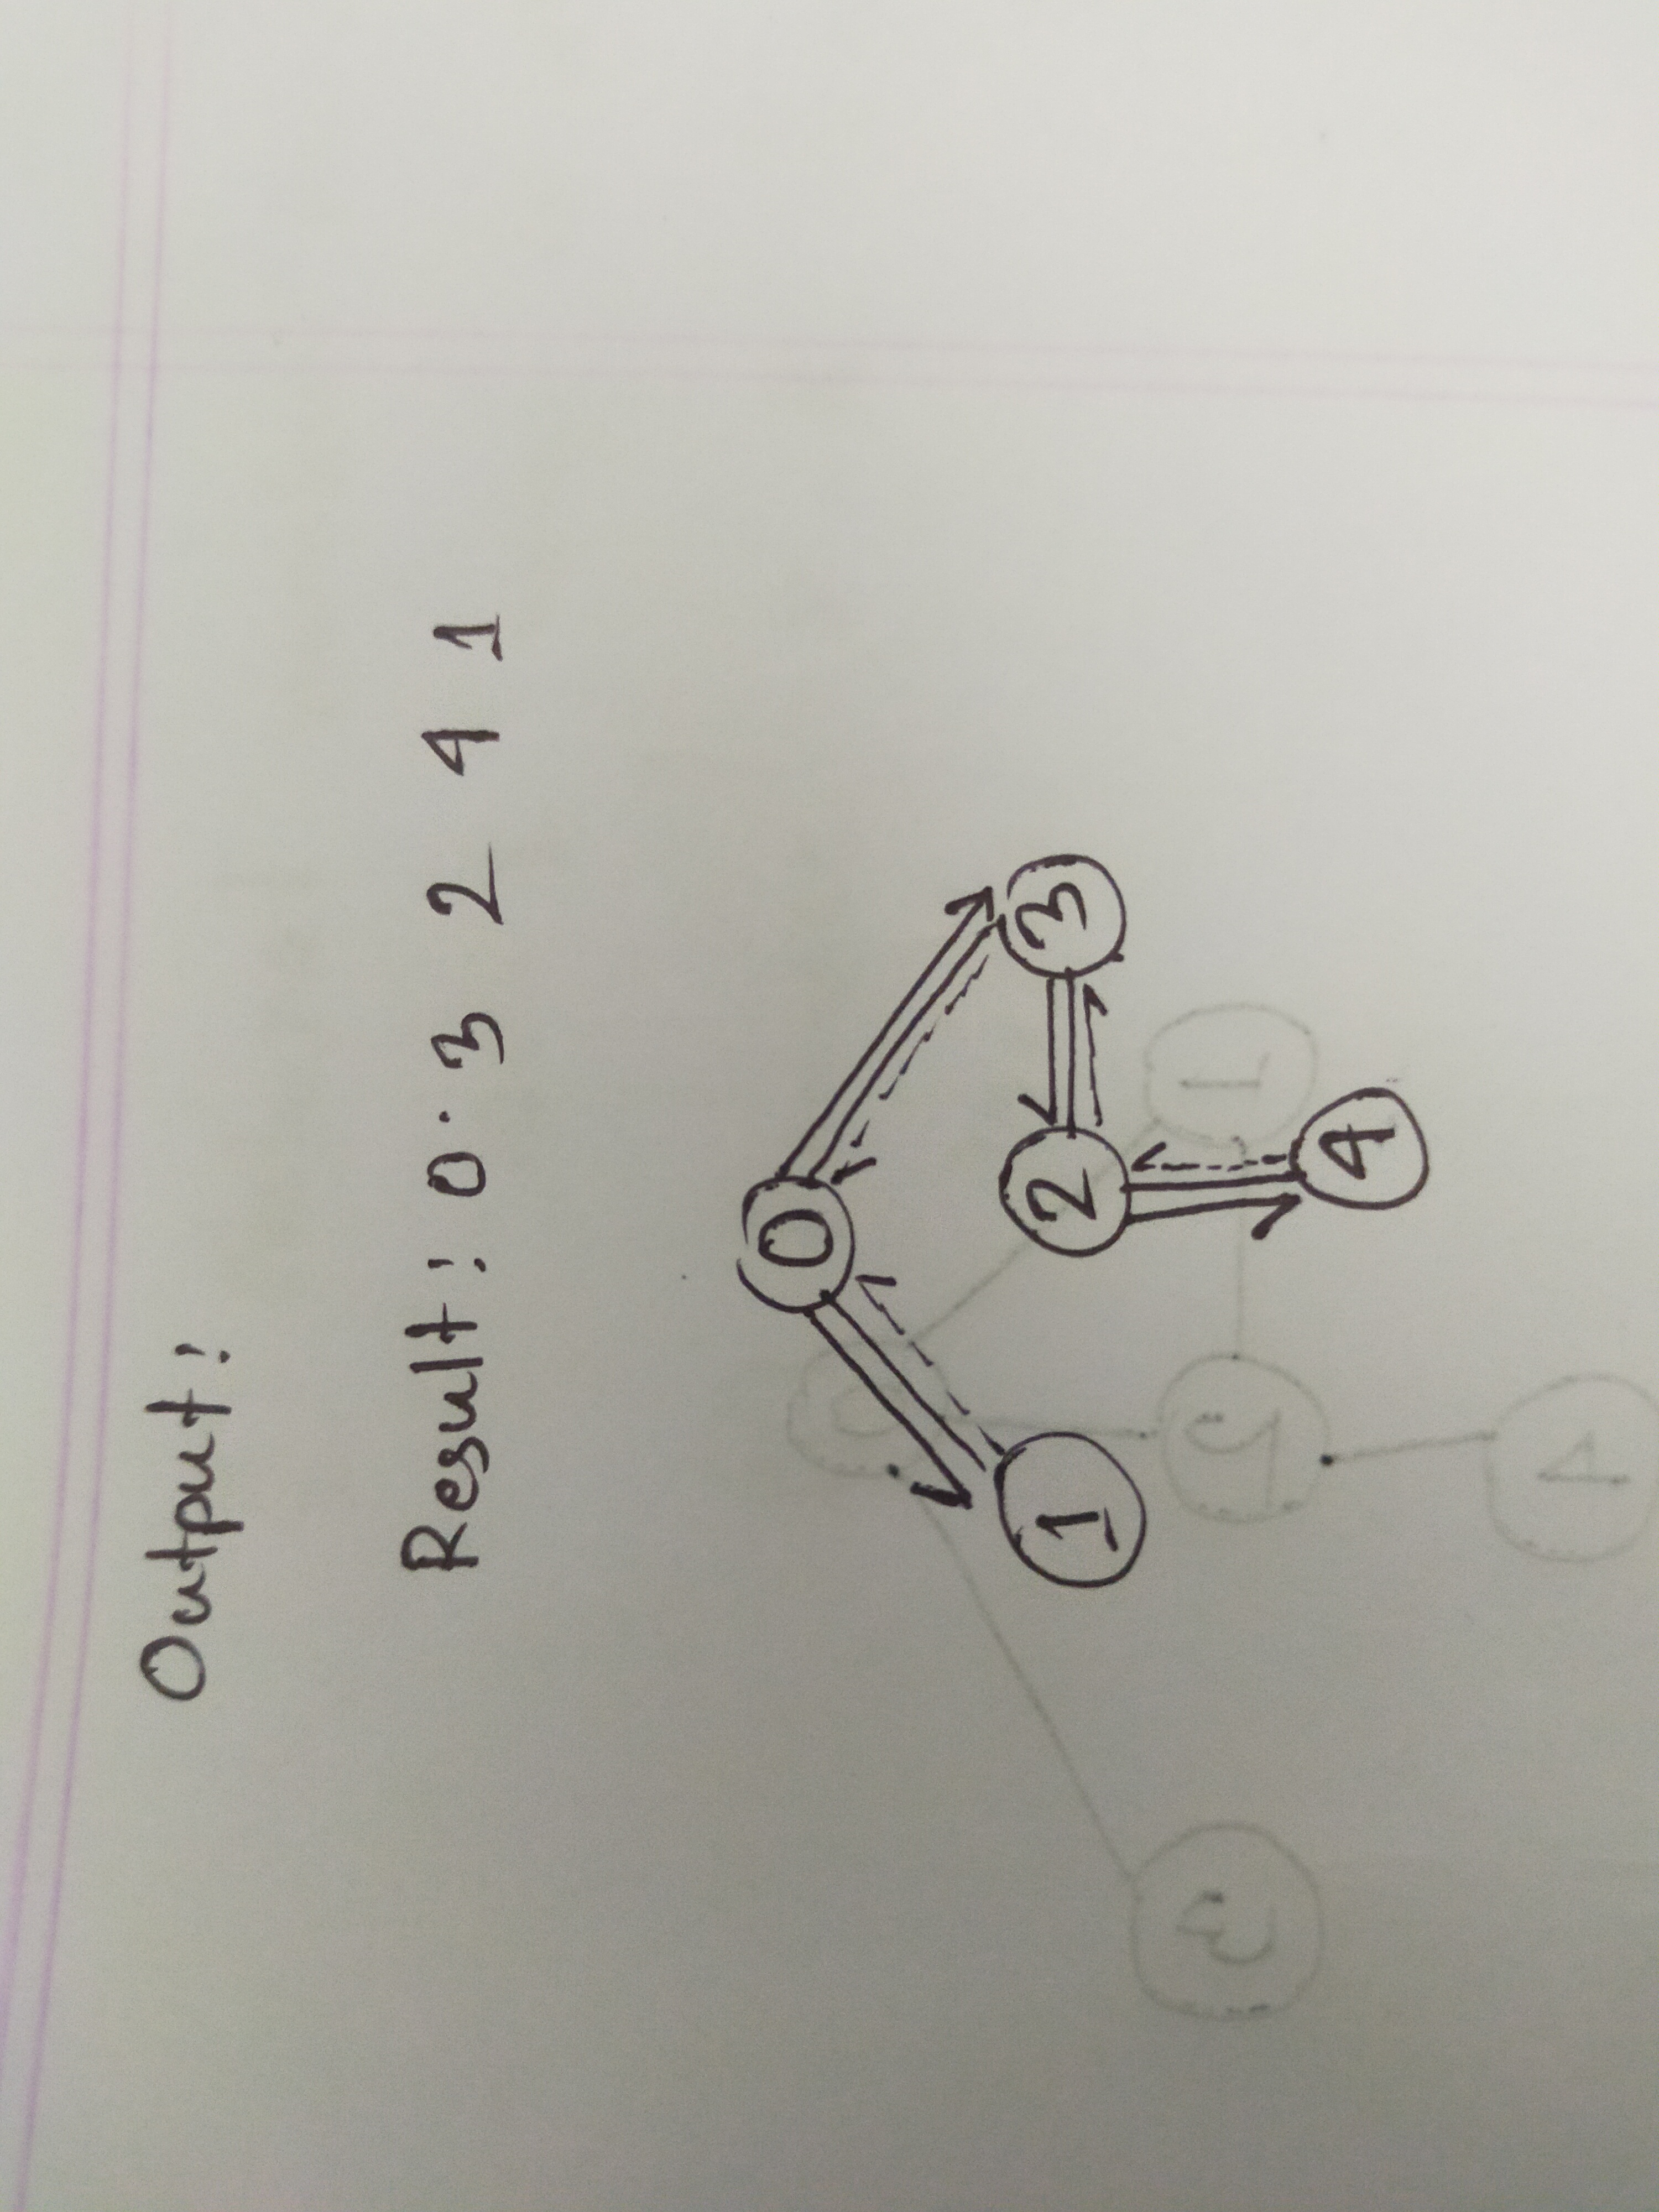 Output:
Result: 0 3 2 4 1
0
1
2
3
4